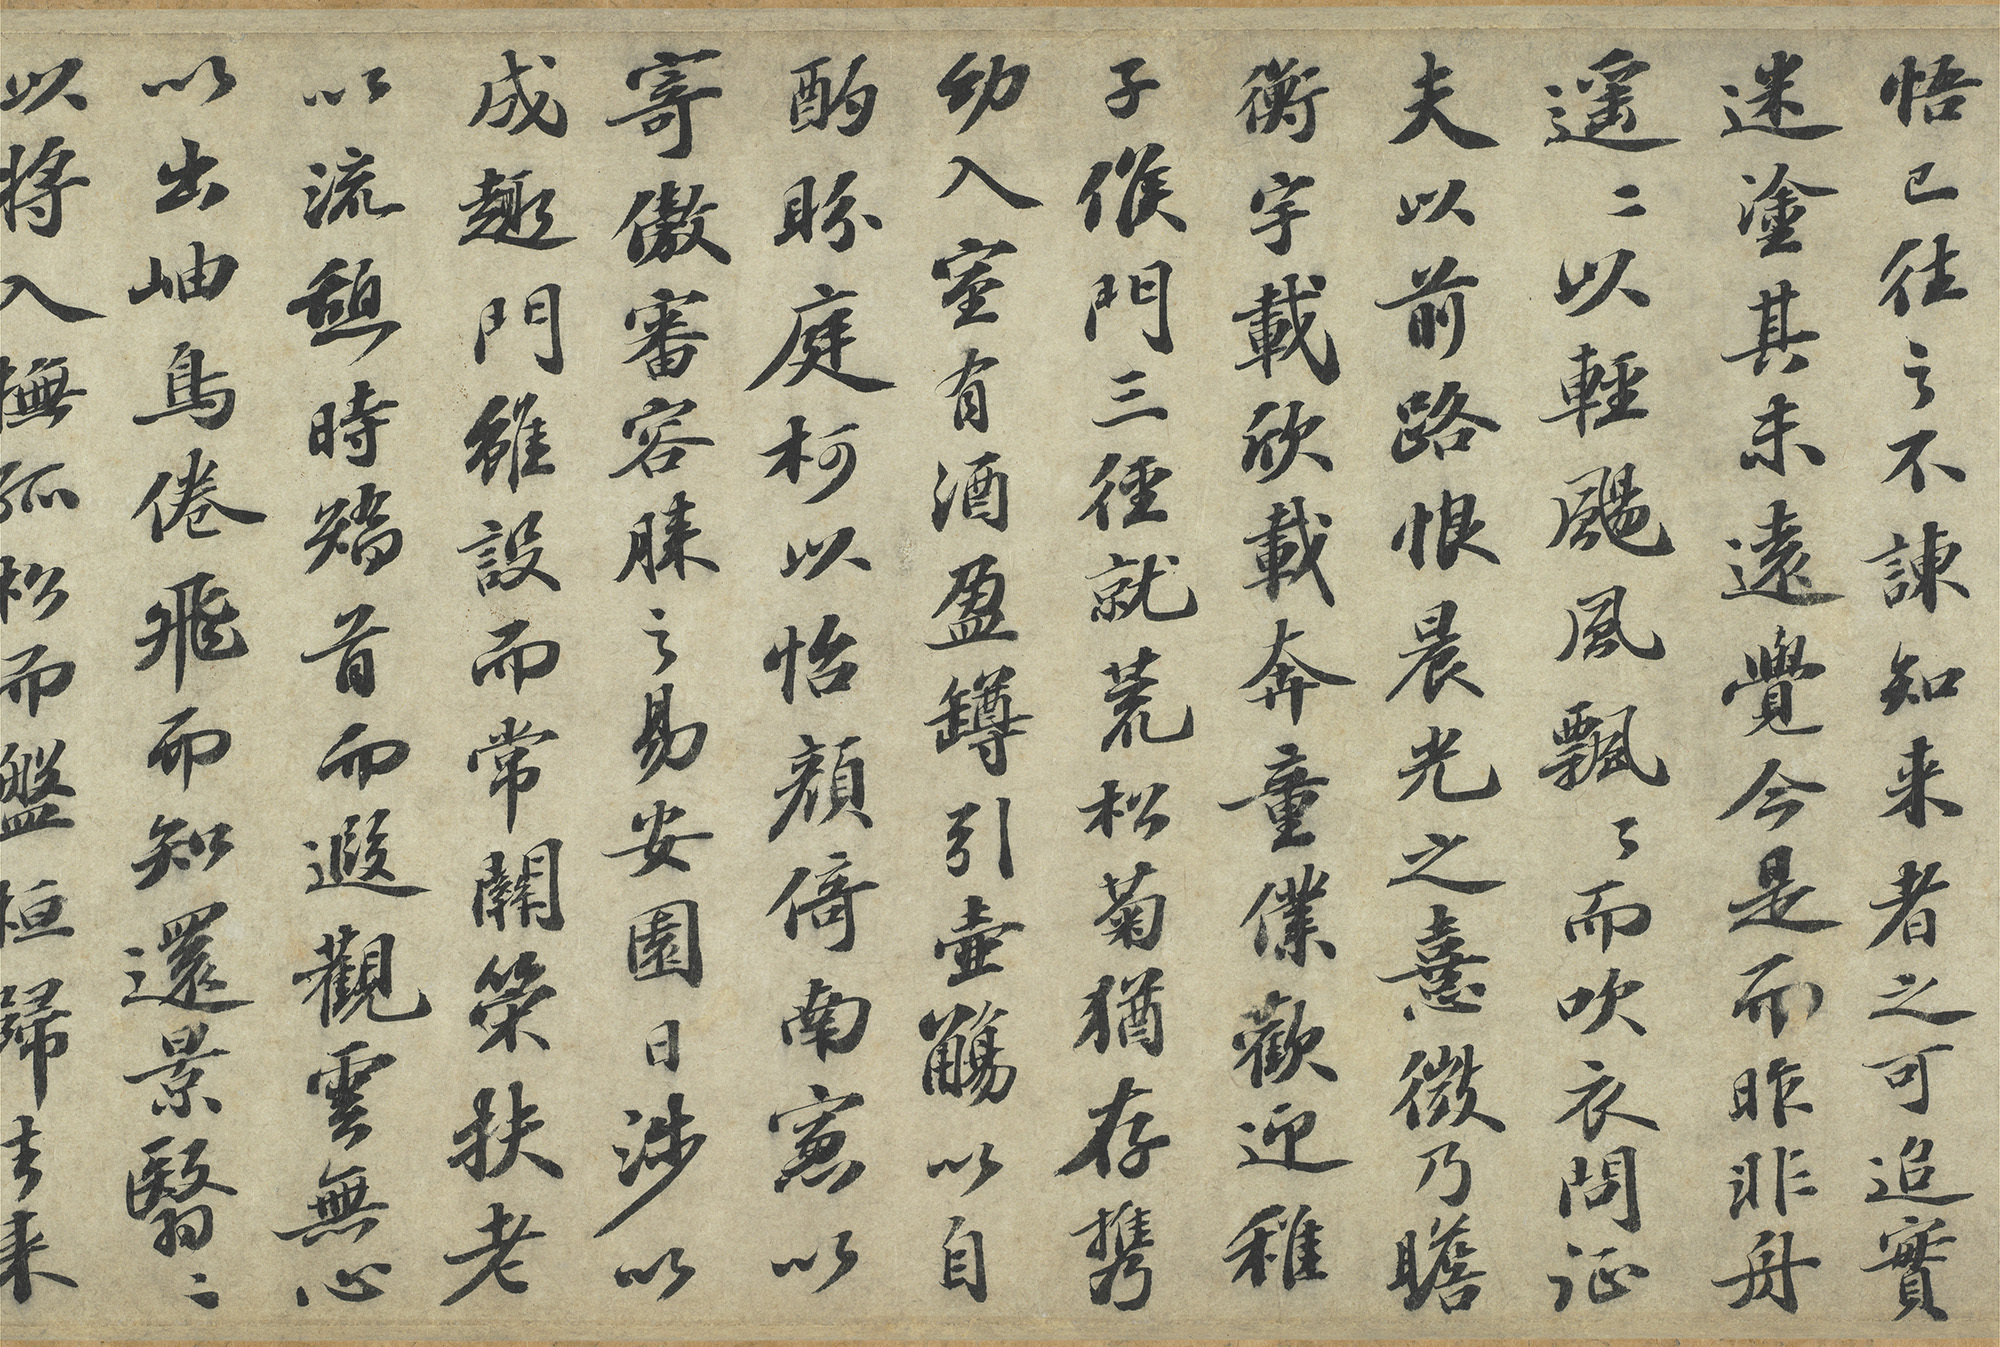 悟已往之不諫知来者之可追實
迷塗其未遠覺今是而昨非舟
遥〻以輕颺風飄〻而吹衣問征
夫以前路恨晨光之熹微乃瞻
衡宇載欣載奔童僕歡迎稚
子候門三径就荒松菊猶存携
幼入室有酒盈罇引壷觴以自
酌眄庭柯以怡顔倚南窓以
寄傲審容膝之易安園日涉以
成趣門雖設而常關策扶老
以流憩時矯首而遐觀雲無心
以出岫鳥倦飛而知還景翳〻
以将入撫孤松而盤桓歸去来